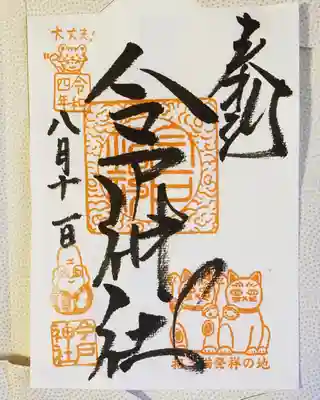 奉拝
今戸神社
大丈夫!
令和
四年
八月十一日
今戸
神社
招き猫発祥の地